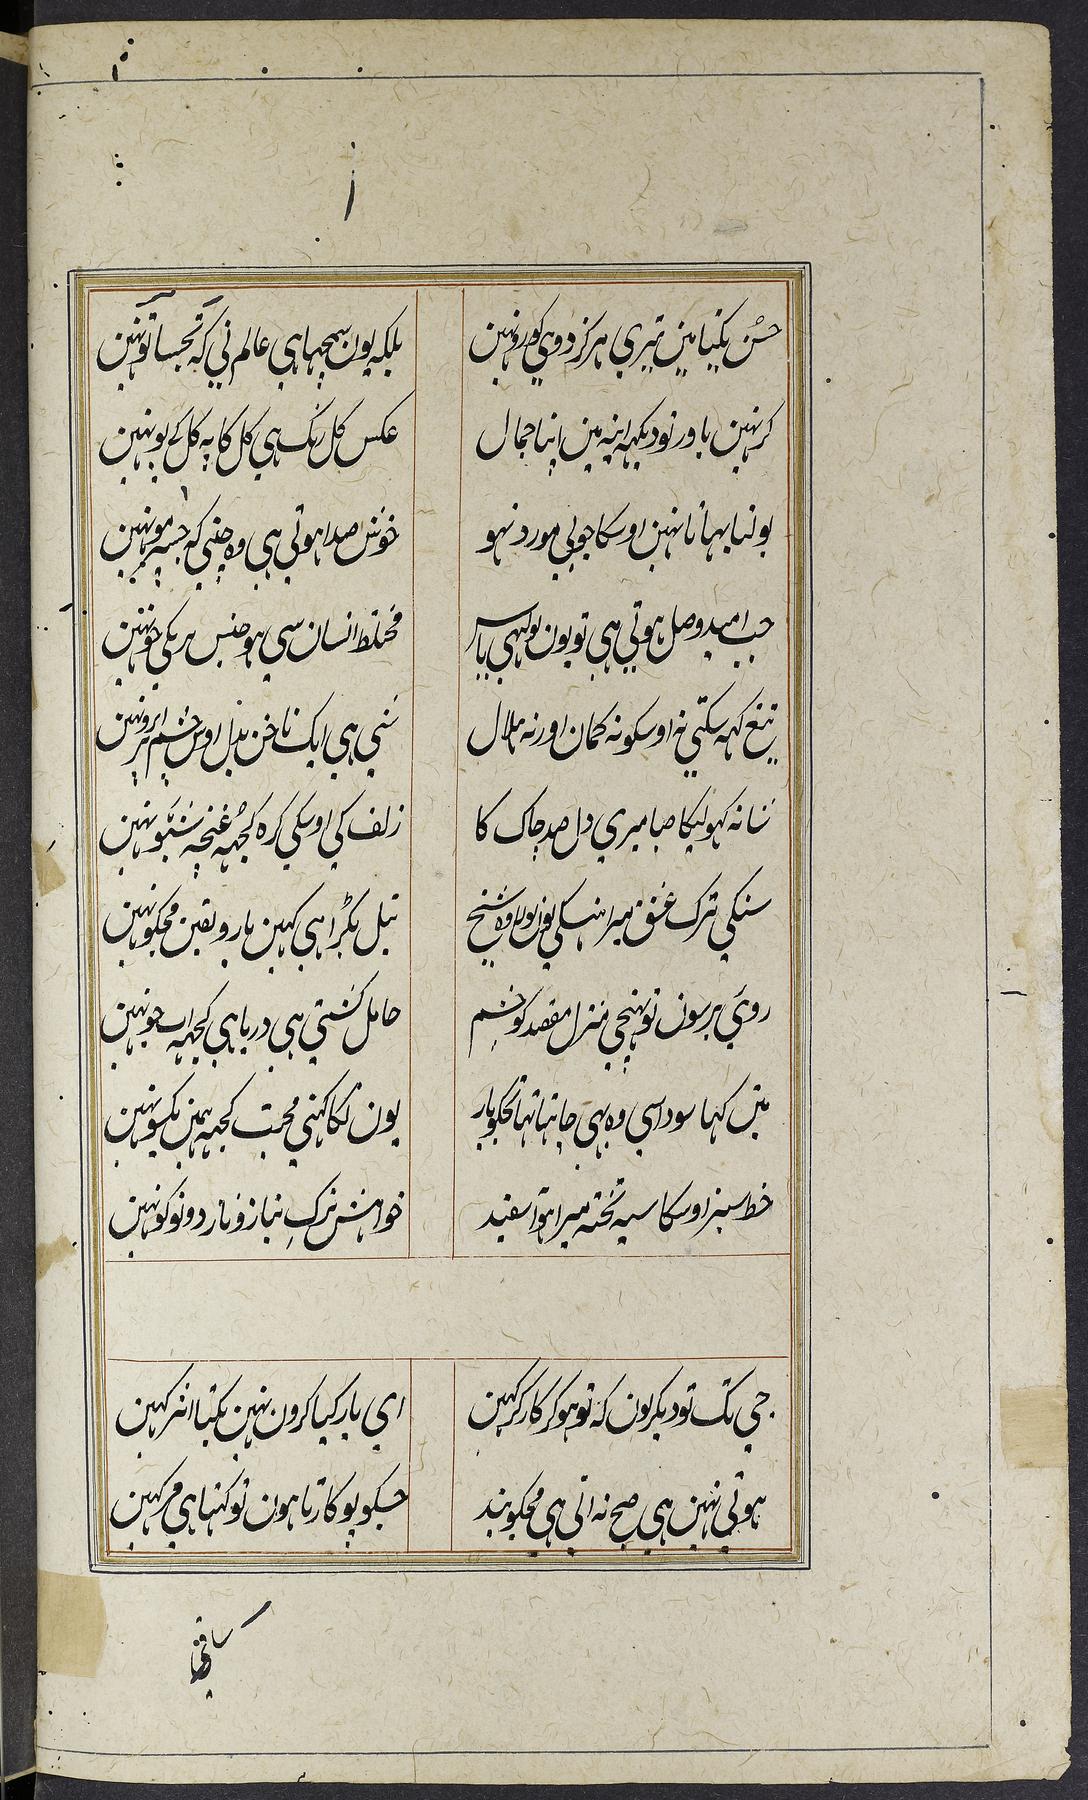 حسُن یکتا مین تیری هرکز دوی کو رو نہین
بلکہ یون سمجہا ہی عالم نی کہ تجسا تو نہین
کر نہین باور تو دیکہہ اینہ مین اپنا جمال
عکس کل رنک ہی کل کا پہ کل کے بو نہین
بولنا بہاتا نہین اوسکا جو بی مو رد نہو
خوش صدا ہوتی ہی وہ چینی کہ جسپر مو نہین
جب امید وصل ہوتی ہی تو یون بولہی یاس
مختلط انسان سی ہو جنس پری کی خو نہین
تیغ کہہ سکتی نہ اوسکو نہ کمان اور نہ ہلال
ہی ایک ناخن بدل اوس چشم پر ابرو نہین
شانہ کہولیکا صبا میری دل صد چاک کا
زلف کی اوسکی کرہ کچہہ غنچہ شبّو نہین
سنکی ترک عشق میرا ہنسکی یون بولا وہ شیخ
نیل بکڑا ہی کہین یارو یقین مجکو نہین
روئی برسون تو نہ پہنچی منزل مقصد کو چشم
حامل کشتی ہی دریا ہی کچہہ اب جو نہین
مین کہا سودا سی وہ بہی چاہتا تہا تجکو یار
یون لکا کہنی محبت کچہہ ہمین یکسو نہین
خط سبز اوسکا سیہ تختہ میرا ہوا سفید
خواہش ترکِ نیاز و ناز دونو کو نہین
جی تک تو دیکی لون کہ تو ہو کارکر کہین
ای یار کیا کرون نہین بکتا اثر کہین
ہوتی نہین ہی صبح نہ اتی ہی مجکو نیند
جسکو پوکارتا ہون تو کہتا ہی مر کہین
ساقی